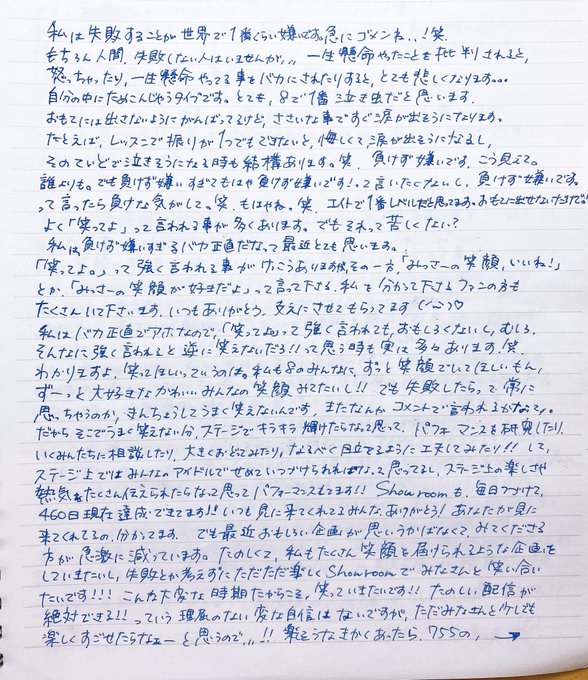 私は失敗することが世界で1番くらい嫌いです。急にゴメンね..!笑
もちろん人間、失敗しない人はいませんが,,, 一生懸命やったことを批判されると、
怒っちゃったり、一生懸命やってる事をバカにされたりすると、とても悲しくなります。。。
自分の中にためこんじゃうタイプです。とても、8で1番泣き虫だと思います。
おもてには出さないようにがんばってるけど、ささいな事ですぐ涙が出そうになります。
たとえば、レッスンで振りが1つでもできないと、悔しくて涙が出そうになるし、
そのていどで泣きそうになる時も結構あります。笑 負けず嫌いです、こう見えて。
誰よりも。でも負けず嫌いすぎてもはや負けず嫌いです!って言いたくないし、負けず嫌いです。
って言ったら負けな気がして。笑 もはやね。笑 エイトで1番レベルだと思ってます。おもてに出せないだけで!!
よく「笑ってよ」って言われる事が多くあります。でもそれって苦しくない?
私は負けず嫌いすぎるバカ正直だなって最近とても思います。
「笑ってよ。」って強く言われる事がけっこうありますが、その一方、「みっさーの笑顔、いいね!」
とか、「みっさーの笑顔が好きだよ」って言って下さる、私を分かって下さるファンの方も
たくさんいて下さいます。いつもありがとう。支えにさせてもらってます
私はバカ正直でアホなので、「笑ってよ」って強く言われても、おもしろくないし、むしろ、
そんなに強く言われると逆に笑えないだろ!!って思う時も実は多々あります!笑
わかりますよ、笑ってほしいっていうのは。私も8のみんなに、ずっと笑顔でいてほしいもん、
ずーっと大好きなかわいいみんなの笑顔みてたいし!! でも失敗したらって常に
思っちゃうのか、きんちょうしてうまく笑えないんです。またなんかコメントで言われるかなって。
だからそこでうまく笑えない分、ステージでキラキラ輝けたらなって思って、パフォーマンスを研究したり、
いくみんたちに相談したり、大きくおどてみたり、なるべく目立てるように工夫してみたり!! して、
ステージ上ではみんなのアイドルでせめていつづけられればなって思ってるし、ステージ上の楽しさや
熱気をたくさん伝えられたらなって思ってパフォーマンスしてます!! Showroomも、毎日つづけて、
460日現在達成できてます!! いつも見に来てくれてるみんなありがとう! あなたが見に
来てくれてるの、分かってます。 でも最近おもしろい企画が思いうかばなくて、みてくださる
方が急激に減っています。たのしくて、私もたくさん笑顔を届けられるような企画を
していきたいし、失敗とか考えずにただただ楽しくShowroomでみなさんと笑い合い
たいです!!! こんな大変な時期だからこそ、笑っていきたいです!! たのしい配信が
絶対できる!! っていう理屈のない変な自信はないですが、ただみなさんと少しでも
楽しくすごせたらなぁーと思うので,,,!! 楽そうなきかくあったら、755の、→